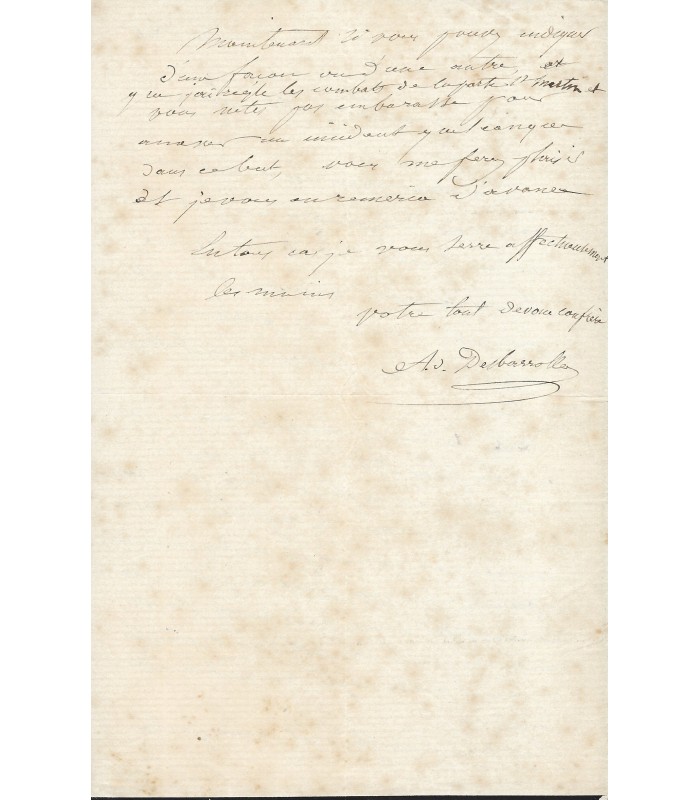 Maintenant si vous pouvez indiquer
d'une façon ou d'une autre, et
que j'ai réglé les combats de la porte St Martin et
vous n'etes pas embarassé pour
amener un incident quelconque
dans ce but, vous me ferez plaisir
et je vous en remercie d'avance
En tous cas je vous serre affectueusement
les mains
votre tout devoué confrère
Ad. Desbarrolles